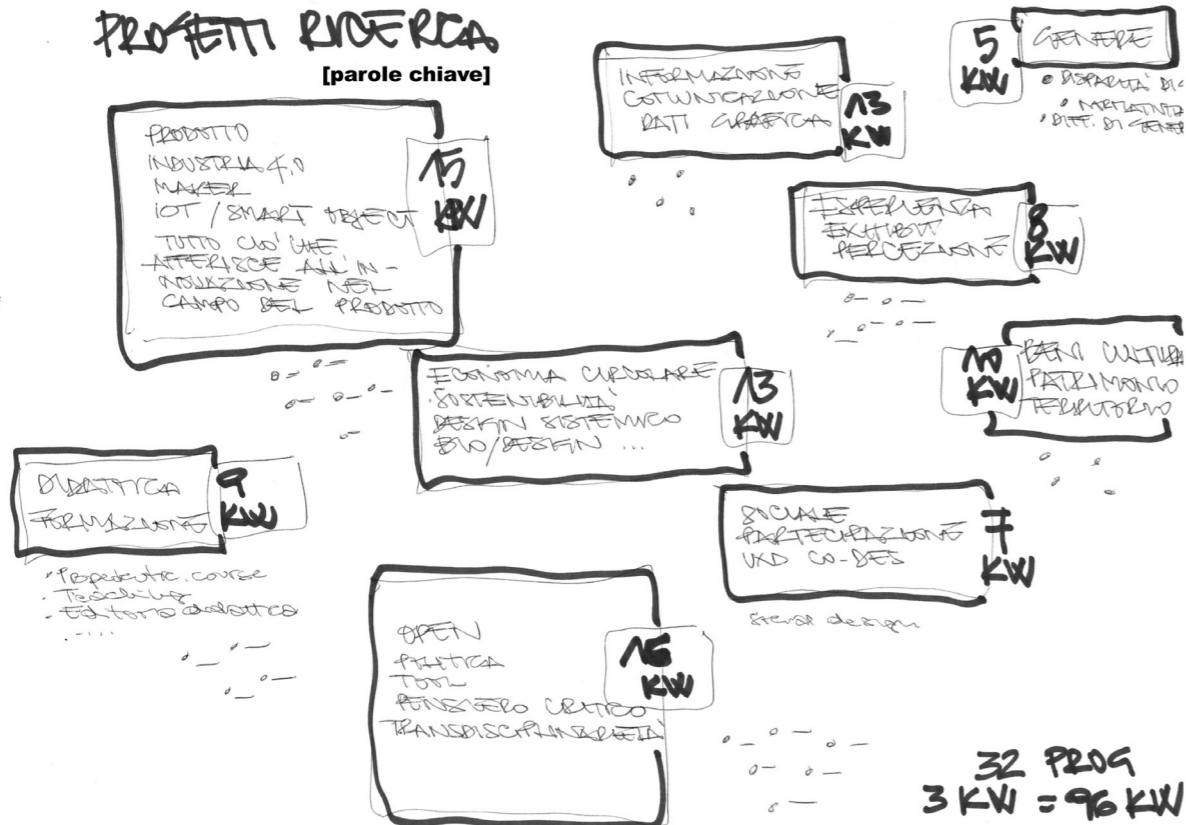 PROGETTI RICERCA
[parole chiave]
PRODOTTO
INDUSTRIA 4.0
MAKER
IOT / SMART OBJECT
TUTTO CIO' CHE
AFFERISCE ALL'IN-
NOVAZIONE NEL
CAMPO DEL PRODOTTO
15
KW
INFORMAZIONE
COMUNICAZIONE
DATI GRAFICA
13
KW
5
KW
GENERE
• DISPARITÀ DI
• DIFF. DI GENER
ESPERIENZA
EXHIBIT
PERCEZIONE
8
KW
10
KW
BENI CULTURA
PATRIMONIO
TERRITORIO
ECONOMIA CIRCOLARE
SOSTENIBILITÀ
DESIGN SISTEMICO
BIO/DESIGN ...
13
KW
DIDATTICA
FORMAZIONE
9
KW
• Propedeutic. course
• Teaching
• Editoria didattica
• ....
SOCIALE
PARTECIPAZIONE
UXD CO-DES
7
KW
design
OPEN
POLITICA
TOOL
PENSIERO CRITICO
TRANSDISCIPLINARIETÀ
KW
32 PROG
3 KW = 96 KW